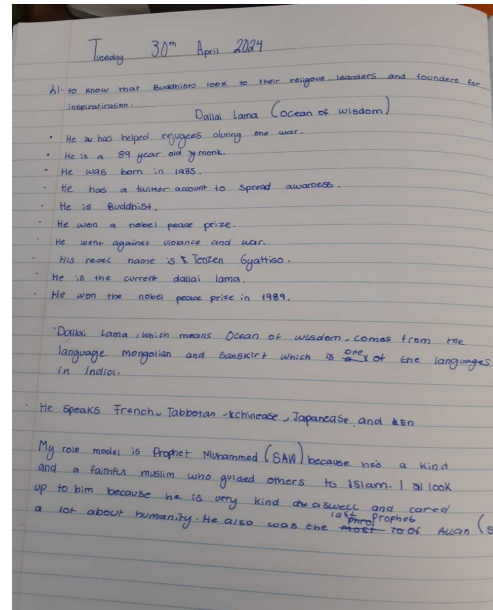 Tuesday 30th April 2024
hI- to know that Buddhists look to their religous learders and founders for
inspiratiraion.
Dallai Lama (ocean of wisdom)
• He has helped refugees during the war.
• He is a 89 year old monk.
• He was born in 1985.
• He has a twitter account to spread awarness.
• He is Buddhist.
• He won a nobel peace prize.
• He went against violance and war.
• His reael name is Tenzen Gyattiso.
• He is the current dallai lama.
• He won the nobel peace prize in 1989.
'Dallai Lama, which means Ocean of wisdom, comes from the
language mongolian and Sanskirt which is one of the languages
in India.
• He speaks French, Tabbotan - chinease, Japanease and
My role model is Prophet Muhammed (SAW) because he's a kind
and a faithful muslim who guided others to islam. I look
up to him because he is very kind aswell and cared
a lot about humanity. He also was the last prophet of